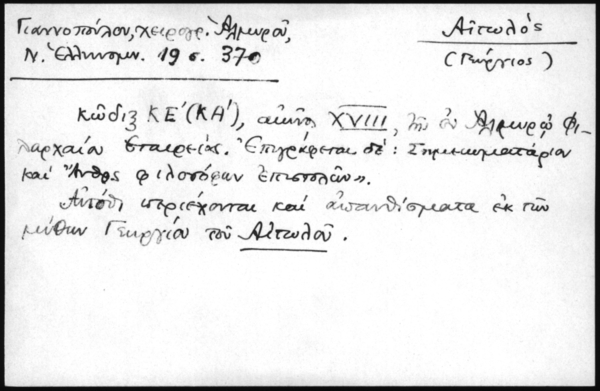 Γιαννοπούλου, χειρογρ. Ἁλμυροῦ,
Ν. Ἑλληνομν. 19 σ. 370
Αἰτωλός
(Γεώργιος)
κῶδιξ ΚΕ΄(ΚΑ΄), αἰῶνος XVIII, τῆς ἐν Ἁλμυρῷ Φι-
λαρχαίου Ἑταιρείας. Ἐπιγράφεται δέ: Σημειωματάριον
καὶ "Ἄνθος φιλοσόφων ἐπιστολῶν".
Αὐτόθι περιέχονται καὶ ἀπανθίσματα ἐκ τῶν
μύθων Γεωργίου τοῦ Αἰτωλοῦ.